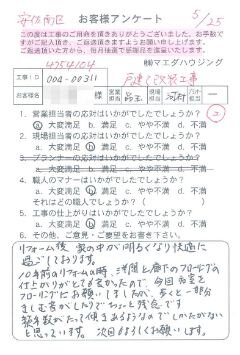 安佐南区 お客様アンケート 5/25
この度は工事のご用命を頂きありがとうございました。お手数で
すがご記入頂き、ご返送頂きますようお願い申し上げます。
ご返送頂いた方から、毎月抽選で感謝品を差し上げます。
4754104 ㈱マエダハウジング
工事ID 004-00311 戸建て改装工事
お客様名 様 営業担当 現場担当
1. 営業担当者の応対はいかがでしたでしょうか?
a. 大変満足 b. 満足 c. やや不満 d. 不満
2. 現場担当者の応対はいかがでしたでしょうか?
a. 大変満足 b. 満足 c. やや不満 d. 不満
3. プランナーの応対はいかがでしたでしょうか?
a. 大変満足 b. 満足 c. やや不満 d. 不満
4. 職人のマナーはいかがでしたでしょうか?
a. 大変満足 b. 満足 c. やや不満 d. 不満
それはどの職人でしょうか?( )
5. 工事の仕上がりはいかがでしたでしょうか?
a. 大変満足 b. 満足 c. やや不満 d. 不満
6. その他、ご意見・ご要望をお書き下さい。
リフォーム後 家の中が明るくなり快適に
過ごしております。
10年前のリフォームの時、洋間と廊下のフローリングの
仕上がりがとても良かったので、今回和室を
フローリングにお願いしましたが、歩くと一部分
きしむ音がしたりでちょっと残念です。
築年数がたって傾きあるようなのでしかたがない
と思っています。 次回もよろしくお願いします。